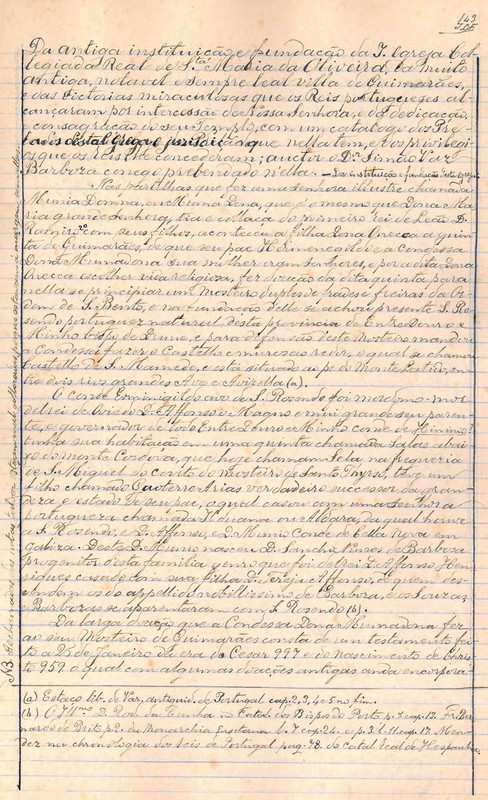 143
Da antiga instituição e fundação da I. Igreja Col-
legiada Real de S.ta Maria da Oliveira, da muito
antiga, notavel e sempre leal villa de Guimarães,
e das victorias miraculosas que os Reis portugueses al-
cançaram por intercessão de Nossa Senhora, e da dedicação,
e consagração do seu Templo, com um catalogo dos Pre-
lados desta Igreja e jurisdicção que nella tem, e os privile-
gios que os Reis lhe concederam; auctor o D.or Simão Vaz
Barboza conego prebendado n'ella. — Da instituição e fundação desta Igreja.
Nas partilhas que fez uma senhora illustre chamada
Munia Domna, ou Muma Dona, que é o mesmo que Dona Ma-
ria grande Senhora, tia e collaça do primeiro rei de Leão D.
Ramiro com seus filhos, aconteceu á filha Dona Onecca a quin-
ta de Guimarães, de que seu pae Hermenegildo e a Condessa
Dona Mumadona sua mulher eram senhores, e por a dita Dona
Onecca escolher vida religiosa, fez doação da dita quinta para
nella se principiar um Mosteiro duplex de frades e freiras da Or-
dem de S. Bento, e na fundação delle se achou presente S. Ro-
sendo portuguez natural desta provincia de Entre Douro e
Minho bispo de Dume, e para defensão deste Mosteiro mandou
a Condessa fazer o Castello e muros ao redor, o qual se chamou
Castello de S. Mamede, e está situado ao pé do Monte Latido, en-
tre dois rios grandes Ave e Avizella (a).
O conde Ermenigildo avô de S. Rosendo foi mordomo-mor
del rei de Oviedo D. Affonso o Magno e mui grande seu paren-
te, e governador de todo Entre Douro e Minho conde de
tinha sua habitação em uma quinta chamada Salas abai-
xo do monte Cordova, que hoje chamam Sela na freguezia
de S. Miguel do couto do mosteiro de Santo Thyrso, teve um
filho chamado Guoterre Arias verdadeiro successor da gran-
deza e estado de seu pae, o qual casou com uma senhora
portugueza chamada Ilduara ou Aldara, da qual houve
a S. Rosendo, e D. Affonso, e D. Munio Conde de Cella Nova em
Galiza. Deste D. Munio nasceu D. Sancho Nunes de Barboza
progenitor desta familia, genro que foi del rei D. Affonso Hen-
riques casado com sua filha D. Tereja Affonso, de quem des-
cendem os do appellido nobilissimo de Barboza, e os Souzas
e Barbozas se aparentaram com S. Rosendo (b).
Da larga doação que a Condessa Dona Mumadona fez
ao seu Mosteiro de Guimarães consta de um testamento fei-
to a 25 de Janeiro da era de Cesar 997 e do Nascimento de Chris-
to 959. o qual com algumas doações antigas anda encorpora-
(a) Estaço lib. de Var. antiguid. de Portugal cap. 2, 3, 4 e 5 no fim.
(b) O Ill.mo D. Rod. da Cunha no Catal. dos Bispos do Porto p. 1 cap. 17. Fr. Ber-
nardo de Brito p. 2. da Monarchia Lusitana l. 7 cap. 24. e p. 3 l. 11. cap. 17. Men-
dez na chronologia dos reis de Portugal pag. 78. do Catal. real de Hespanha.
NB.